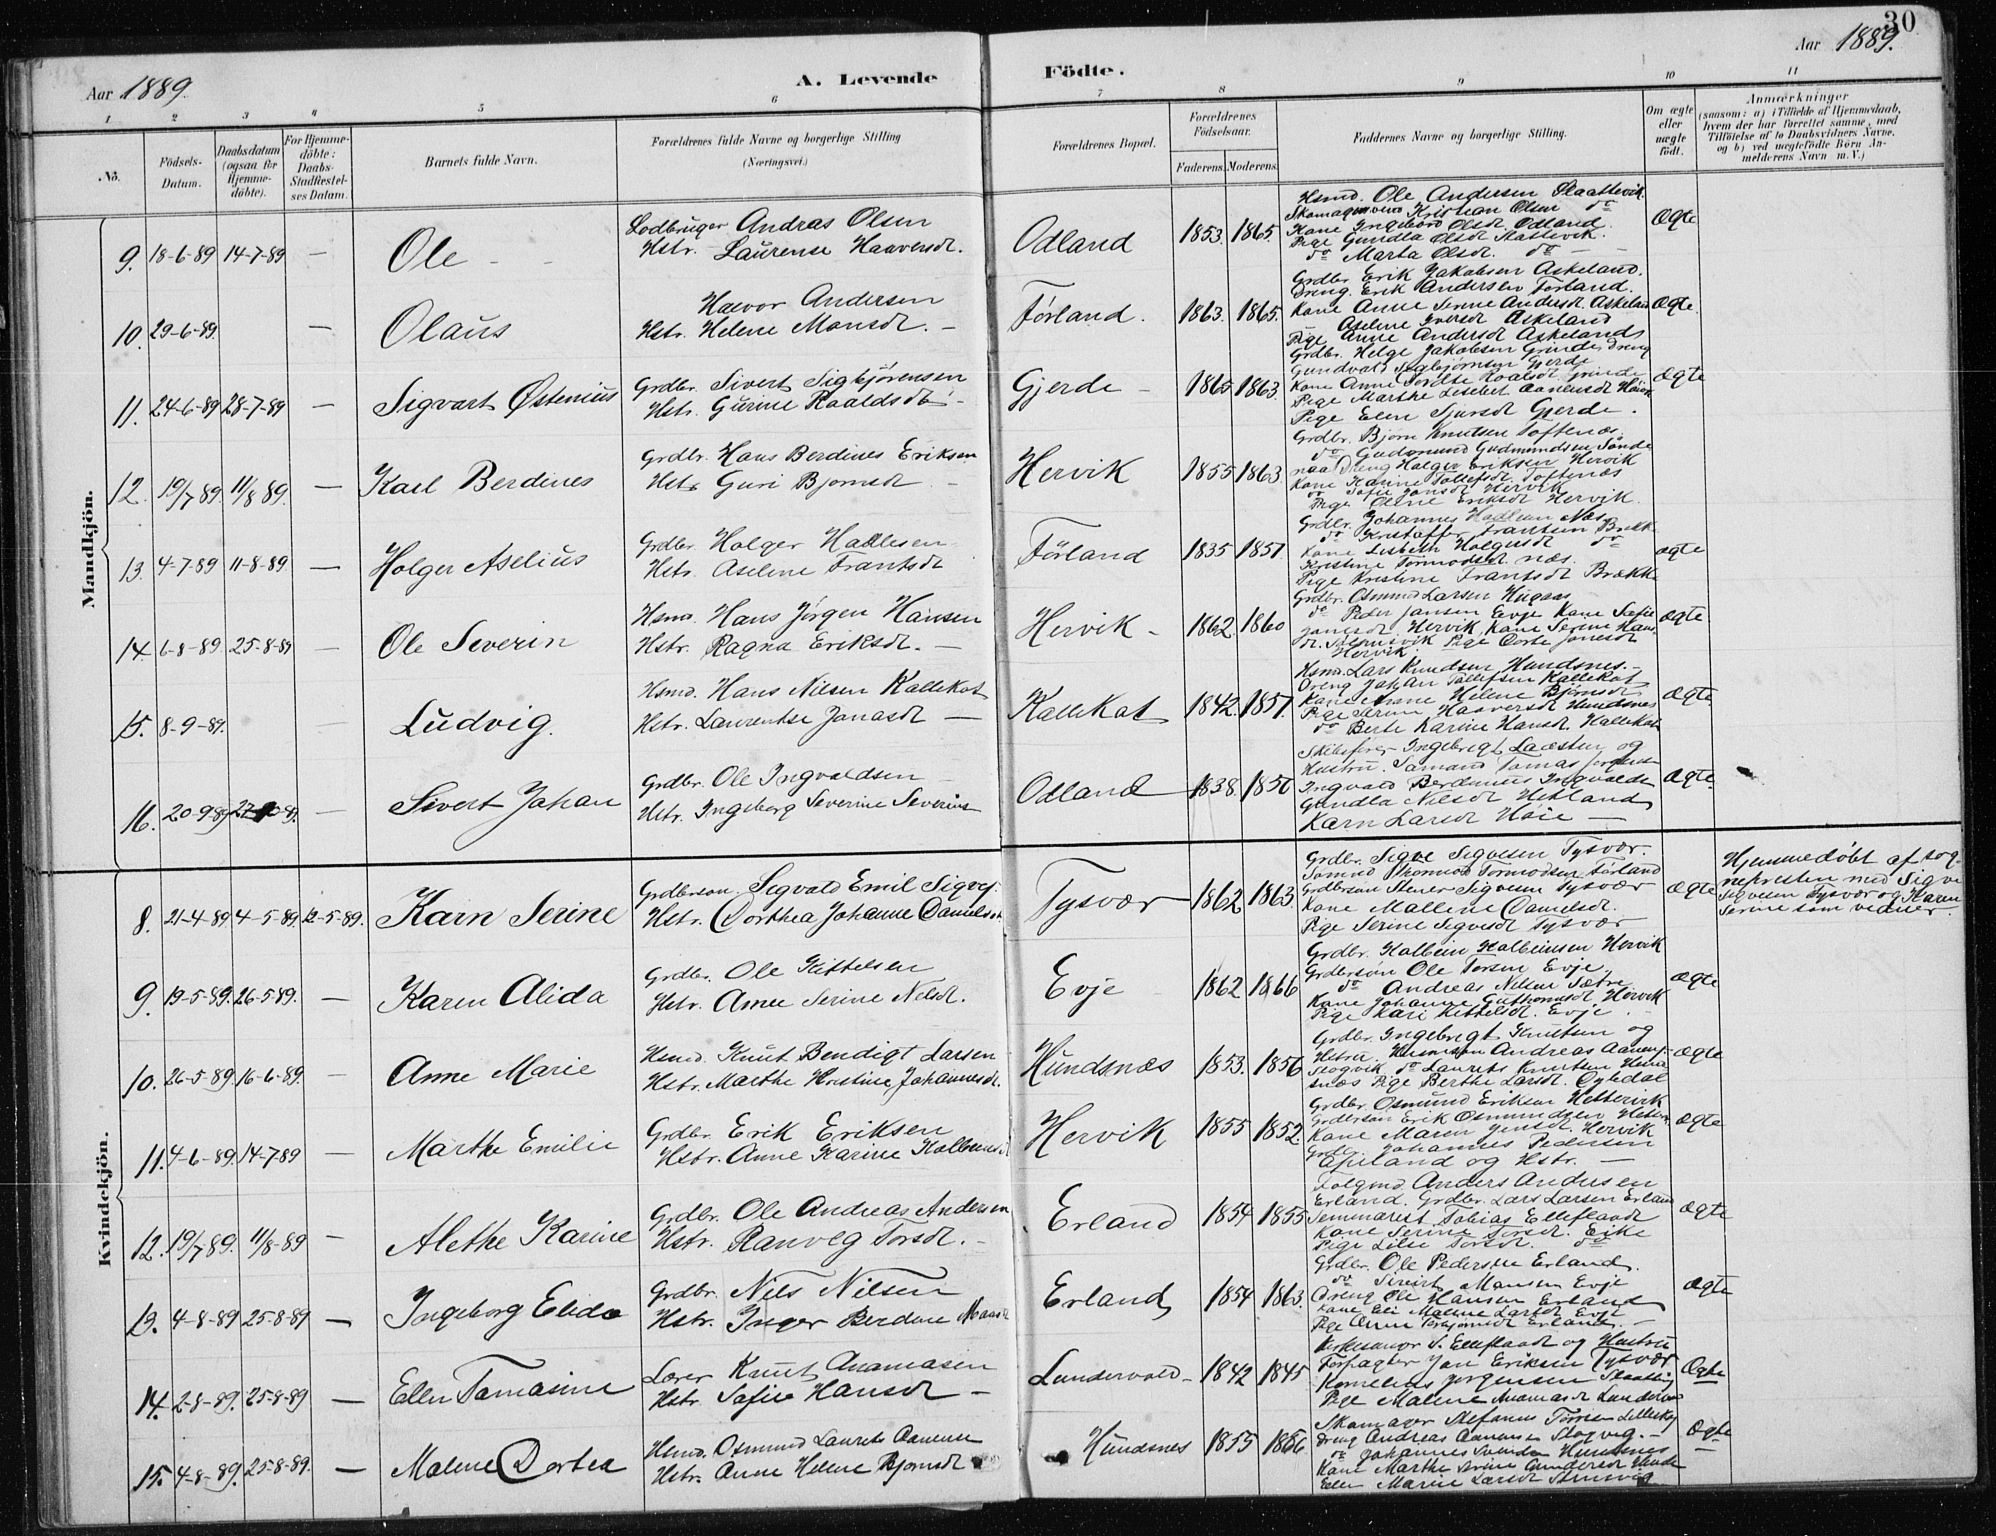 30
Aar 1889.
A. Levende
Födte.
Aar 1889.
1 2 3 4 5 6 7 8 9 10 11
No.
Födsels-Datum.
Daabsdatum (ogsaa for Hjemme-döbte).
For Hjemme-döbte: Daabs-Stadfæstel-ses Datum.
Barnets fulde Navn.
Forældrenes fulde Navne og borgerlige Stilling (Næringsvei.)
Forældrenes Bopæl.
Forældrenes Födselsaar.
Faderens. Moderens.
Faddernes Navne og borgerlige Stilling.
Om ægte eller uægte födt.
Anmærkninger
(saasom: a) i Tilfælde af Hjemmedaab,
hvem der har forrettet samme, med
Tilföielse af to Daabsvidners Navne,
og b) ved uægtefödte Börn An-
melderens Navn m. V.)
Mandkjön.
9. 18-6-89 14-7-89 — Ole
Lodbruger Andras Olsen
Hstr. Laurense Haaversdt.
Odland 1853. 1865.
Hsmd. Ole Andersen Slaattevik
Kristian Olsen do
Kone Ingebord Olsdt. Odland
Pige Gundla Olsdt Slattevik
do Marta Olsdt. do
Ægte
10. 29-6-89. — Olaus
Halvor Andersen
Hstr. Helene Monsdt. —
Førland. 1863. 1865.
Grdbr. Erik Jakobsen Askeland.
Dreng. Erik Andersen Førland.
Kone Anne Serine Andersdt. Askeland
Aselene Iversdt Askeland
Pige Anne Andersdt Askeland
Ægte.
11. 24-6-89 28-7-89 — Sigvart Østenius
Grdbr. Sivert Sigbjörensen
Hstr. Gurine Roaldsdt.
Gjerde — 1865 1863.
Grdbr. Helge Jakobsen Grinde Dreng
Gundvald Sigbjørnsen Gjerde
Kone Anne Roaldsdt. Grinde
Pige Marthe Lisebet Aanensdt
Pige Elen Sjursdt Gjerde.
Ægte
12. 19/7 89. 11/8 89. — Karl Berdines
Grdbr. Hans Berdines Eriksen
Hstr Guri Bjornsdt —
Hervik 1855 1863.
Grdbr. Bjørn Knutsen Toftenæs.
do Gudmund Gudmundsen Sønde
naa Dreng Holger Eriksen Hervik
Kone Karine Tollefsdt. Toftenæs
do Sofie Jansdt Hervik
Pige Oline Eriksdt Hervik.
13. 4-7-89 11-8-89 — Holger Aselius
Grdbr. Holger Hallesen
Hstr. Aselene Frantsdt
Førland 1835 1851.
Grdbr. Johannes Næs
do Kristoffer Frantsen Brekk
Kone Lisbeth Holgersdt do
Kristine Tormodsdt næs.
Pige Kristine Frantsdt Brække
ægte
14. 6-8-89. 25-8-89 — Ole Severin
Hsmd. Hans Jörgen Hansen
Hstr. Ragna Eriksdt. —
Hervik — 1862. 1860
Grdbr. Osmund Larsen
do Peder Jansen Evje Kone Sofie
Jansdt. Hervik, Kone Serine Han-
Pige Dorte Jansdt
Hervik
Ægte
15. 8-9-89. Ludvig.
Hsmd. Hans Nilsen Kallekot
Hstr. Laurentse Jonasdt —
Kallekot 1842. 1851.
Hsmd. Lars Knudsen Hundsnes. —
Dreng Johan Tollefsen Kallekot
Kone Anne Helene Bjørnsdt
Pige Serine Haaversdt Hundsnes
do Berte Karine Hansdt Kallekot
Ægte
16. 20-9-89 — Sivert Johan
Grdbr. Ole Ingvaldsen
Hstr. Ingeborg Severine
Odland 1838. 1850
Skibsfører Ingebrigt og
Hustru.
Ingvald Berdinius Ingvaldsen
Gundla Nilsdt Hetland
Karn Larsdt Høie —
Ægte.
Kvindekjön.
8. 21-4-89. 4-5-89. 12-5-89. Karn Serine
Grdbrson. Sigvald Emil Sigvej-
Hstr. Dorthea Johanne Danielsdt
Tysvær 1862 1863.
Grdbr. Sigve Sigvesen Tysvær.
Tormodsen Førland
Grdbrsøn Stener Sigvesen Tysvær
Kone Mallene Danielsdt.
Pige Serine Sigvesdt Tysvær
Ægte
Hjemmedøbt af sog-
nepresten med Sigve
Sigvesen Tysvær og Karen
Serine som vidner.
9. 19-5-89. 26-5-89. — Karen Alida
Grdbr. Ole Kittelsen
Hstr. Anne Serine Nilsdt.
Evje 1862 1866
Grdbr. Kolbein Kolbeinsen Hervik
Grdbrsøn Ole Torsen Evje
do Andreas Nilsen Sætre
Kone Johanne Guthormsdt. Hervik
Pige Kari Kittelsdt. Evje
Ægte
10. 26-5-89. 16-6-89. — Anne Marie
Hsmd. Knut Bendigt Larsen
Hstr. Marthe Kristine Johannesdt.
Hundsnæs 1853. 1856
Grdbr. Ingebrigt Knutsen og
Hstru. Andreas Aanens-
Skogvik do Laurits Knutsen Hund
snæs Pige Berthe Larsdt.
Ægte
11. 4-6-89. 14-7-89 — Marthe Emilie
Grdbr. Erik Eriksen
Hstr. Anne Karine Kolbeinsdt
Hervik 1855 1852.
Grdbr. Osmund Eriksen Hettervik
Grdbrsøn Erik Osmundsen
Kone Maren Jensdt. Hervik
Grdbr. Johannes Pedersen
Apeland og Hstr. —
Ægte
12. 19/7 89. 11/8-89 — Alethe Karine
Grdbr. Ole Andreas Andersen
Hstr. Ranveg Torsdt. —
Erland 1854 1855
Folgmd. Anders Andersen
Erland. Grdbr. Lars Larsen Erland
Seminarist Tobias Elleflaadt
Kone Serine Torsdt. Eike
Pige Lise Torsdt. do
Ægte
13. 4-8-89 25-8-89 — Ingeborg Elida
Grdbr. Nils Nilsen
Hstr. Inger Berdine
Erland 1854 1863.
Grdbr. Ole Pedersen Erland.
do Sivert Monsen Evje
Dreng Ole Hansen Erland
Kone Eli Malene Larsdt Evje
Pige Anne Torbjørnsdt Erland. —
Ægte
14. 2-8-89. 25-8-89 — Ellen Tomasine
Lærer Knut Ananiasen
Hstr. Sofie Hansdt —
Lundervold — 1842 1845
S. Elleflaadt og Hustru
Forpagter Jan Eriksen Tysvær
Kornelius Jørgensen
Pige Malene Ananiasdt
Ægte
15. 4-8-89. 25-8-89. — Malene Dortea
Hsmd. Osmund Laurits Aanensen
Hstr. Anne Helene Bjornsdt
Hundsnes 1855 1856
Skomager Stefanus Torresen
Dreng Andreas Aanensen Skogveg. —
do Johannes Hundsnes
Kone Marthe Serine Gundersdt
Ellen Marie Larsdt
Ægte